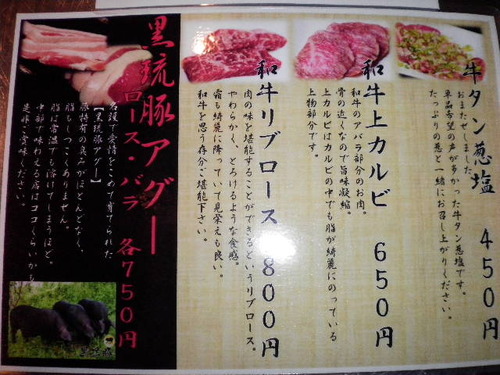 牛タン葱塩 450円
おまたせしました。
単品希望の声が多かった牛タン葱塩です。
たっぷりの葱と一緒にお召し上がりください。
和牛上カルビ 650円
和牛のアバラ部分のお肉。
骨の近くなので旨味凝縮。
上カルビはカルビの中でも脂が綺麗にのっている
上物部分です。
和牛リブロース 800円
肉の味を堪能することができるというリブロース。
やわらかく、とろけるような食感。
霜も綺麗に降っていて見栄えも良い。
和牛を思う存分ご堪能下さい。
黒琉豚アグー
ロース・バラ 各750円
名護で愛情をこめて育てられた
【黒琉豚アグー】
豚特有の臭みがほとんどなく、
脂もしつこくありません。
脂は常温でも溶けてしまうほど。
中部で味わえる店はココくらいかも
是非ご賞味ください。